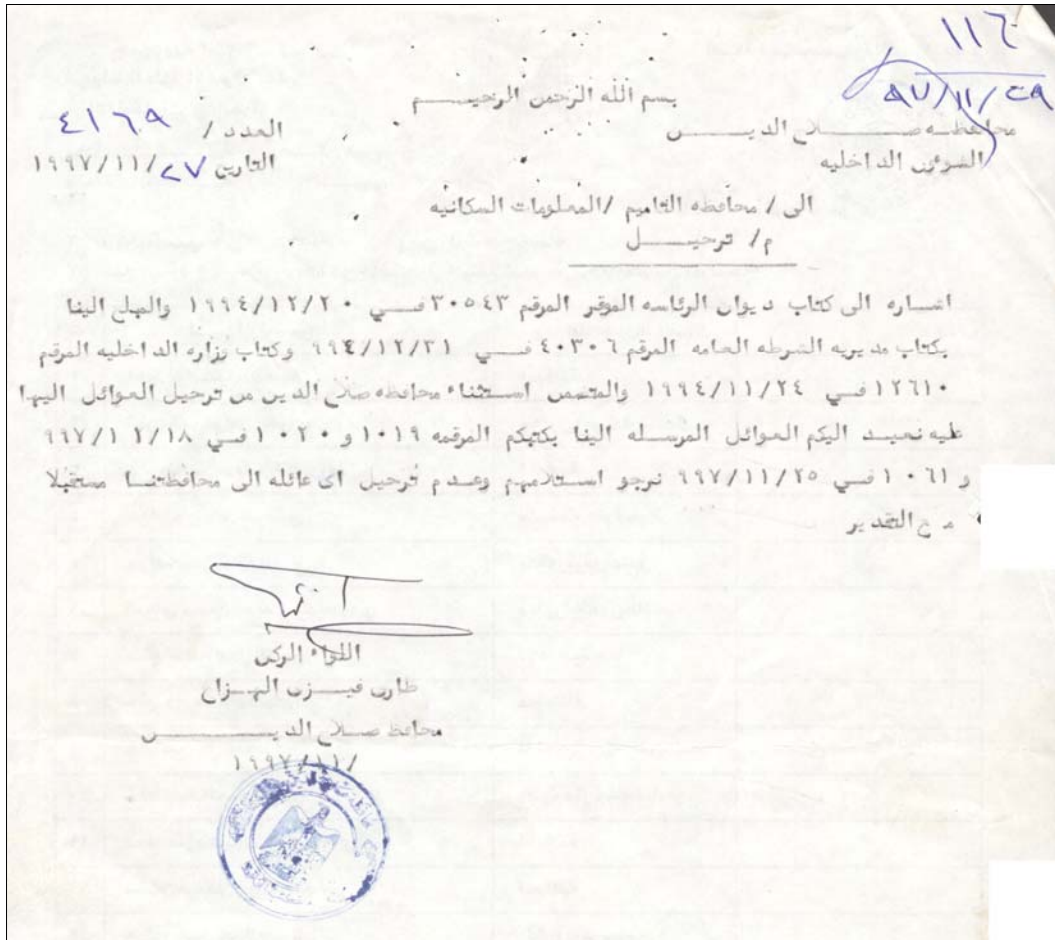 ١١٦
٩٧/١١/٢٩
بسم الله الرحمن الرحيــــم
محافظـه صــــــلاح الديــــــن
الشوؤن الداخليه
العدد / ٤١٦٩
التاريخ ٢٧/١١/١٩٩٧
الى / محافظه التاميم /المعلومات السكانيه
م/ ترحيـــــل
اشــاره الى كتاب ديوان الرئاسه الموقر المرقم ٣٠٥٤٣ فـــي ١٩٩٤/١٢/٢٠ والمبلغ الينا
بكتاب مديريه الشرطه العامه المرقم ٤٠٣٠٦ فـــي ٩٩٤/١٢/٣١ وكتاب وزاره الداخليه المرقم
١٢٦١٠ فـــي ١٩٩٤/١١/٢٤ والمتضمن استثناء محافظه صلاح الدين من ترحيل العوائل اليها
عليه نعيــد اليكم العوائل المرسله الينا بكتبكم المرقمه ١٠١٩ و ١٠٢٠ فــي
و ١٠٦١ فــي ٩٩٧/١١/٢٥ نرجو استلامهم وعــدم ترحيل اى عائله الى محافظتنــا مستقبلا
مـع التقدير
اللواء الركن
محافظ صــلاح الديـــــــــن
/١٩٩٧/١١